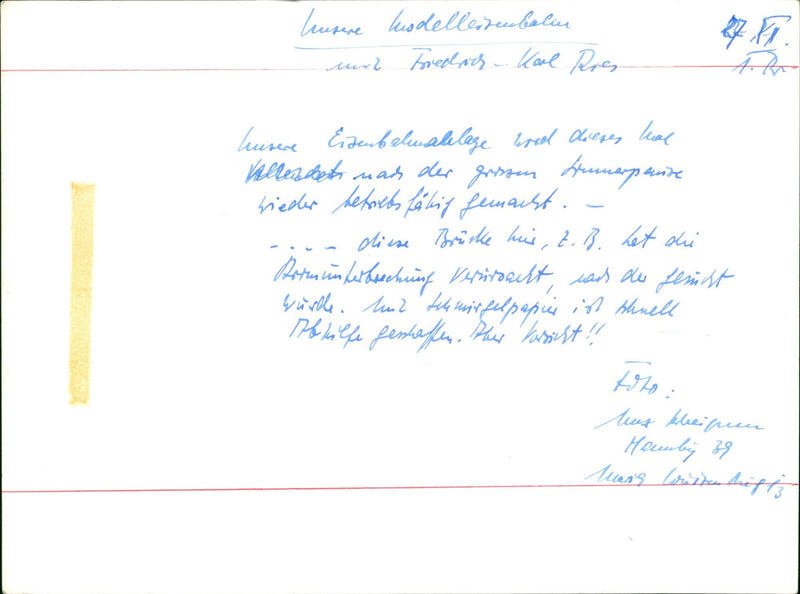 Unsere Modelleisenbahn
27 XI.
mit Friedrich-Karl
1. Pr.
Unsere Eisenbahnanlage wird dieses Mal
nach der grossen Sommerpause
wieder betriebsfähig gemacht. –
- - - - diese Brücke hier, z.B. hat die
Stromunterbrechung verursacht, nach der gesucht
wurde. Mit Schmirgelpapier ist schnell
Abhilfe geschaffen. Aber Vorsicht!!
Foto:
Max
Hamburg 39